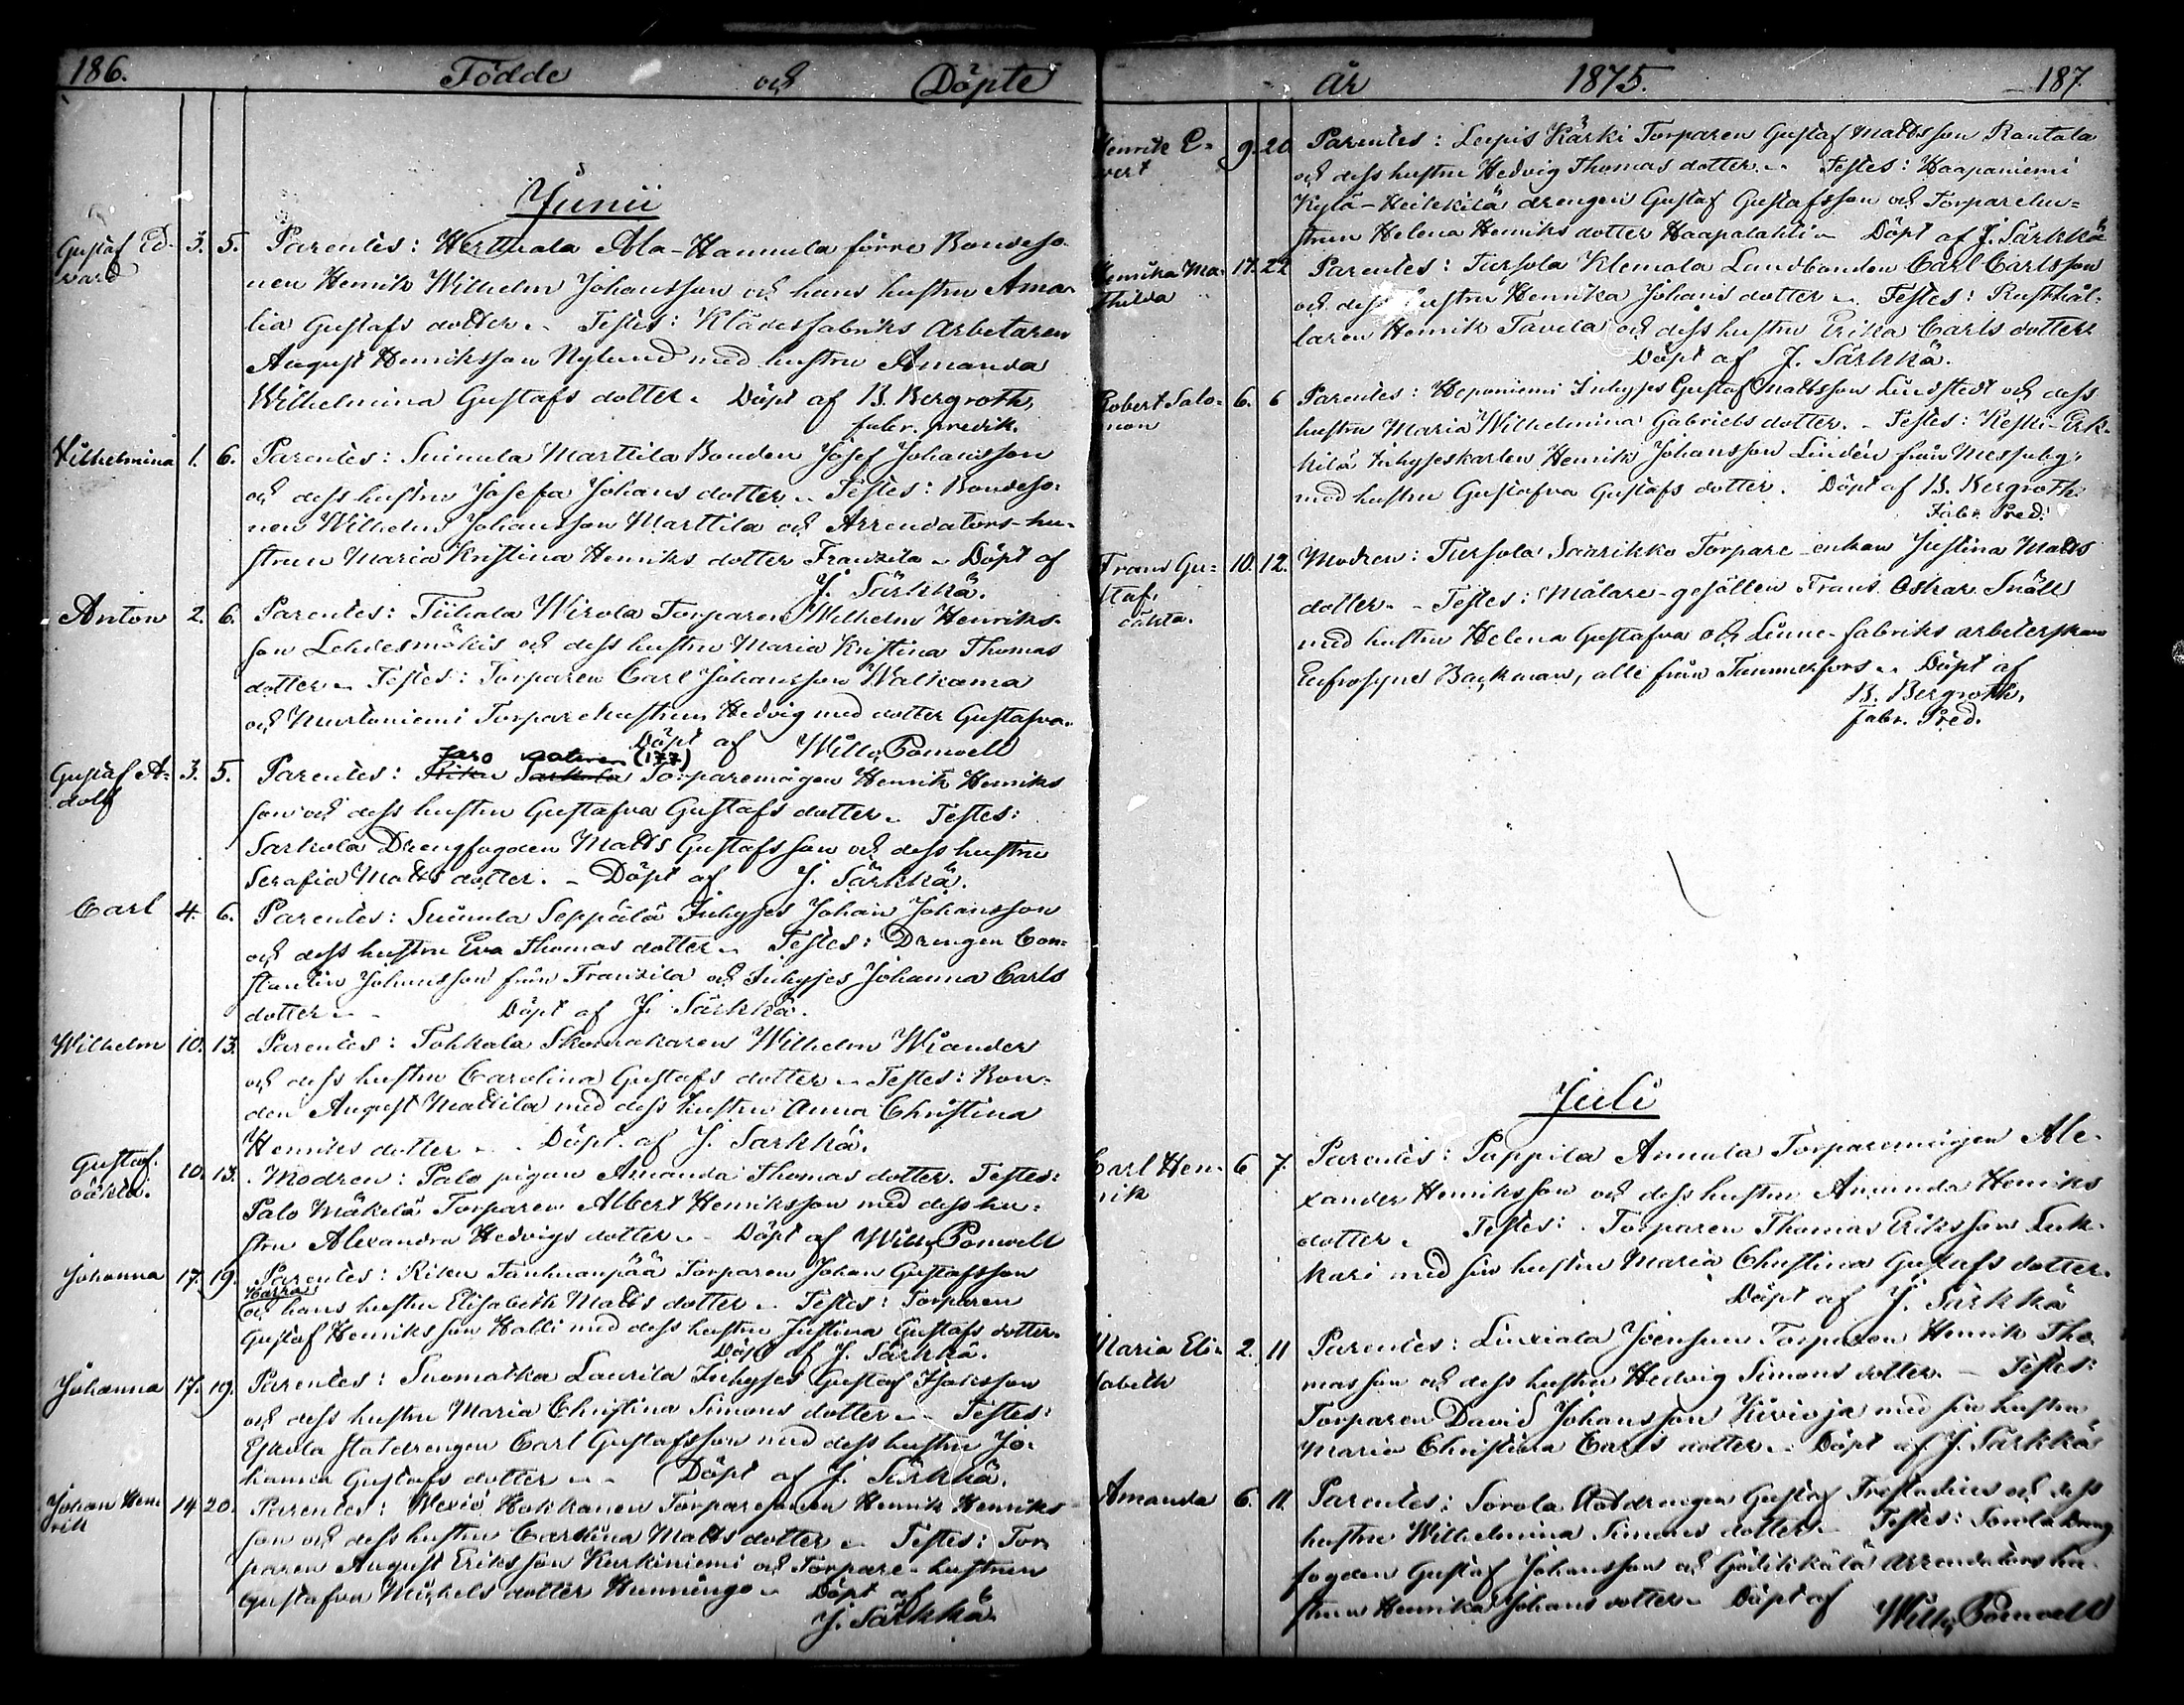 186. Födde och Döpte
Junii
Gustaf Ed- 3. 5. Parentes: Herttuala Ala-Hannula förre Bondeso-
vard nen Henrik Wilhelm Johansson och hans hustru Ama-
lia Gustafs dotter. Testes: Klädesfabriks arbetaren
August Henriksson Nylund med hustru Amanda
Wilhelmina Gustafs dotter. Döpt af B. Bergroth,
fabr. predik.
Wilhelmina 1. 6. Parentes: Suinula Marttila Bonden Josef Johansson
och dess hustru Josefa Johans dotter. Testes: Bondeso-
nen Wilhelm Johansson Marttila och Arrendators-hu-
strun Maria Kristina Henriks dotter Franzila. Döpt af
J. Särkkä.
Anton 2. 6. Parentes: Tiihala Wirola Torparen Wilhelm Henriks-
son Lehdesmökis och dess hustru Maria Kristina Thomas
dotter. Testes: Torparen Carl Johansson Walkama
och Mustoniemi Torparehustrun Hedvig med dotter Gustafva.
Döpt af Wilh. Pomoell
Gustaf A- 3. 5. Parentes: Riku Sarkola (177) Torparemågen Henrik Henriks
dolf son och dess hustru Gustafva Gustafs dotter. Testes:
Sarkola Drengfogden Matts Gustafsson och dess hustru
Serafia Matts dotter. - Döpt af J. Särkkä.
Carl 4. 6. Parentes: Suinula Seppälä Inhyses Johan Johansson
och dess hustru Eva Thomas dotter. Testes: Drengen Con-
stantin Johansson från Franzila och Inhyses Johanna Carls
dotter. - Döpt af J. Särkkä.
Wilhelm 10. 13. Parentes: Tohkala Skomakaren Wilhelm Wiander
och dess hustru Carolina Gustafs dotter. Testes: Bon-
den August Mattila med dess hustru Anna Christina
Henriks dotter. - Döpt af J. Särkkä.
Gustaf. 10. 13. Modren: Palo pigan Amanda Thomas dotter. Testes:
oäkta. Palo Mäkelä Torparen Albert Henriksson med dess hu-
stru Alexandra Hedvigs dotter. Döpt af Wilh. Pomoell
Johanna 17. 19. Parentes: Riku Tanhuanpää Torparen Johan Gustafsson
Harra
och hans hustru Elisabeth Matts dotter. Testes: Torparen
Gustaf Henriksson Halli med dess hustru Justina Gustafs dotter.
Döpt af J. Särkkä.
Johanna 17. 19. Parentes: Suomatka Laurila Inhyses Gustaf Isaksson
och dess hustru Maria Christina Simons dotter. Testes:
Eskola statdrengen Carl Gustafsson med dess hustru Jo-
hanna Gustafs dotter. - Döpt af J. Särkkä.
Johan Hen- 14 20. Parentes: Wexiö Hokkanen Torparesonen Henrik Henriks
rik son och dess hustru Carolina Matts dotter. Testes: Tor-
paren August Eriksson Kurkiniemi och Torpare-hustrun
Gustafva Michels dotter Hunninge. Döpt af
J. Särkkä.
år 1875. 187.
Henrik E- 9. 20 Parentes: Lepis Kärki Torparen Gustaf Mattsson Rantala
vert och dess hustru Hedvig Thomas dotter. Testes: Haapaniemi
Kylä-Heikkilä drengen Gustaf Gustafsson och Torparehu-
strun Helena Henriks dotter Haapalahti. Döpt af J. Särkkä
Henrika Ma- 17. 22 Parentes: Tursola Klemola Landbonden Carl Carlsson
thilda och dess hustru Henrika Johans dotter. Testes: Rusthål-
laren Henrik Tavela och dess hustru Erika Carls dotter
Döpt af J. Särkkä.
Robert Salo- 6. 6 Parentes: Heponiemi Inhyses Gustaf Mattsson Lindstedt och dess
mon hustru Maria Wilhelmina Gabriels dotter. - Testes: Keski-Erk-
kilä Inhyseskarlen Henrik Johansson Lindén från Messuby,
med hustru Gustafva Gustafs dotter. Döpt af B. Bergroth
Fabr. Pred.
Frans Gu- 10. 12. Modren: Tursola Saarikko Torpare-enkan Justina Matts
staf. dotter. - Testes: Målare-gesällen Frans Oskar Snäll
oäkta. med hustru Helena Gustafva och Linne-fabriks arbeterskan
Eufrosyne Backman, alle från Tammerfors. Döpt af
B. Bergroth,
fabr. Pred.
Juli
Carl Hen- 6 7. Parentes: Pappila Annula Torparemågen Ale-
rik xander Henriksson och dess hustru Amanda Henriks
dotter. Testes: Torparen Thomas Eriksson Luk-
kari med sin hustru Maria Christina Gustafs dotter.
Döpt af J. Särkkä
Maria Eli- 2. 11 Parentes: Liuxiala Joensuu Torparen Henrik Tho-
sabeth masson och dess hustru Hedvig Simons dotter. - Testes:
Torparen David Johansson Kivioja med sin hustru
Maria Christina Carls dotter. Döpt af J. Särkkä
Amanda 6. 11. Parentes: Sorola Statdrengen Gustaf Trofladius och dess
hustru Wilhelmina Simons dotter. Testes: Sorola Dreng
fogden Gustaf Johansson och Gödikkälä arrendators hu-
strun Henrika Johans dotter. Döpt af Wilh. Pomoell